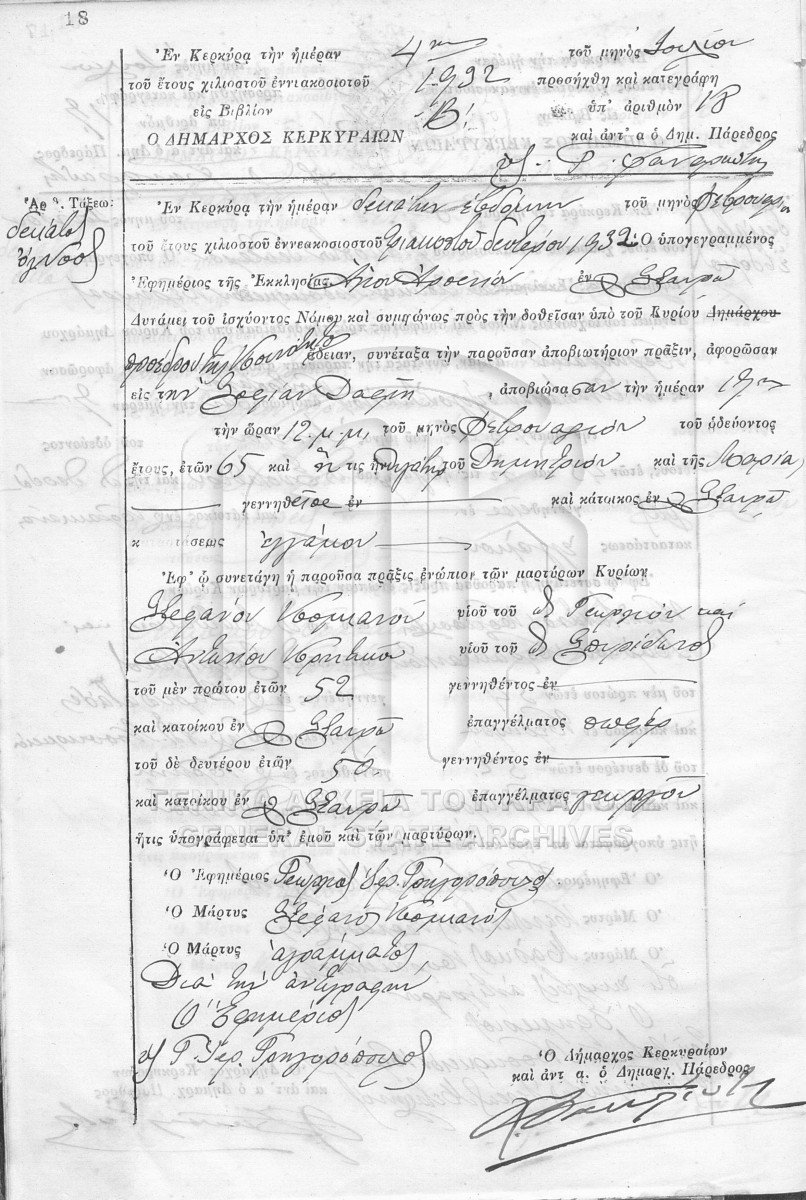 18
Ἐν Κερκύρᾳ τὴν ἡμέραν 4ην τοῦ μηνὸς Ἰουλίου
τοῦ ἔτους χιλιοστοῦ ἐννιακοσιοστοῦ 1932 προσήχθη καὶ κατεγράφη
εἰς Βιβλίον Β! ὑπ' ἀριθμὸν 18
Ο ΔΗΜΑΡΧΟΣ ΚΕΡΚΥΡΑΙΩΝ καὶ ἀντ' α ὁ Δημ. Πάρεδρος
Ἀρ θ. Τάξεω:
δέκατος
ὄγδοος
Ἐν Κερκύρᾳ τὴν ἡμέραν δεκάτην ἑβδόμην τοῦ μηνὸς Φεβρουαρίου
τοῦ ἔτους χιλιοστοῦ ἐννεακοσιοστοῦ τριακοστοῦ δευτέρου 1932 Ὁ ὑπογεγραμμένος
Ἐφημέριος τῆς Ἐκκλησίας Ἁγίου Ἀρσενίου ἐν Σταυρῷ
Δυνάμει τοῦ ἰσχύοντος Νόμου καὶ συμφώνως πρὸς τὴν δοθεῖσαν ὑπὸ τοῦ Κυρίου Δημάρχου
προέδρου τῆς Κοινότητος ἄδειαν, συνέταξα τὴν παροῦσαν ἀποβιωτήριον πρᾶξιν, ἀφορῶσαν
εἰς τὴν Σοφίαν , ἀποβιώσασαν τὴν ἡμέραν 17ην
τὴν ὥραν 12 μ.μ. τοῦ μηνὸς Φεβρουαρίου τοῦ ὁδεύοντος
ἔτους, ἐτῶν 65 καὶ ἥτις ἦν θυγάτηρ τοῦ Δημητρίου καὶ τῆς Μαρίας
γεννηθεῖσα ἐν καὶ κάτοικος ἐν Σταυρῷ
κ τάσεως ἐγγάμου
Ἐφ' ᾧ συνετάγη ἡ παροῦσα πρᾶξις ἐνώπιον τῶν μαρτύρων Κυρίων
Στεφάνου υἱοῦ τοῦ Γεωργίου καὶ
Ἀντωνίου υἱοῦ τοῦ Σπυρίδωνος
τοῦ μὲν πρώτου ἐτῶν 52 γεννηθέντος ἐν
καὶ κατοίκου ἐν Σταυρῷ ἐπαγγέλματος
τοῦ δὲ δευτέρου ἐτῶν 50 γεννηθέντος ἐν
καὶ κατοίκου ἐν Σταυρῷ ἐπαγγέλματος γεωργοῦ
ΓΕΝΙΚΑ ΑΡΧΕΙΑ ΤΟΥ ΚΡΑΤΟΥΣ
GENERAL STATE ARCHIVES
ἥτις ὑπογράφεται ὑπ' ἐμοῦ καὶ τῶν μαρτύρων.
Ὁ Ἐφημέριος Γεώργιος Ἱερ. Γρηγορόπουλος
Ὁ Μάρτυς Στέφανος
Ὁ Μάρτυς ἀγράμματος
Διὰ τὴν ἀντιγραφὴν
Ὁ Ἐφημέριος
Γ. Ἱερ. Γρηγορόπουλος
Ὁ Δήμαρχος Κερκυραίων
καὶ ἀντ α. ὁ Δημαρχ. Πάρεδρος